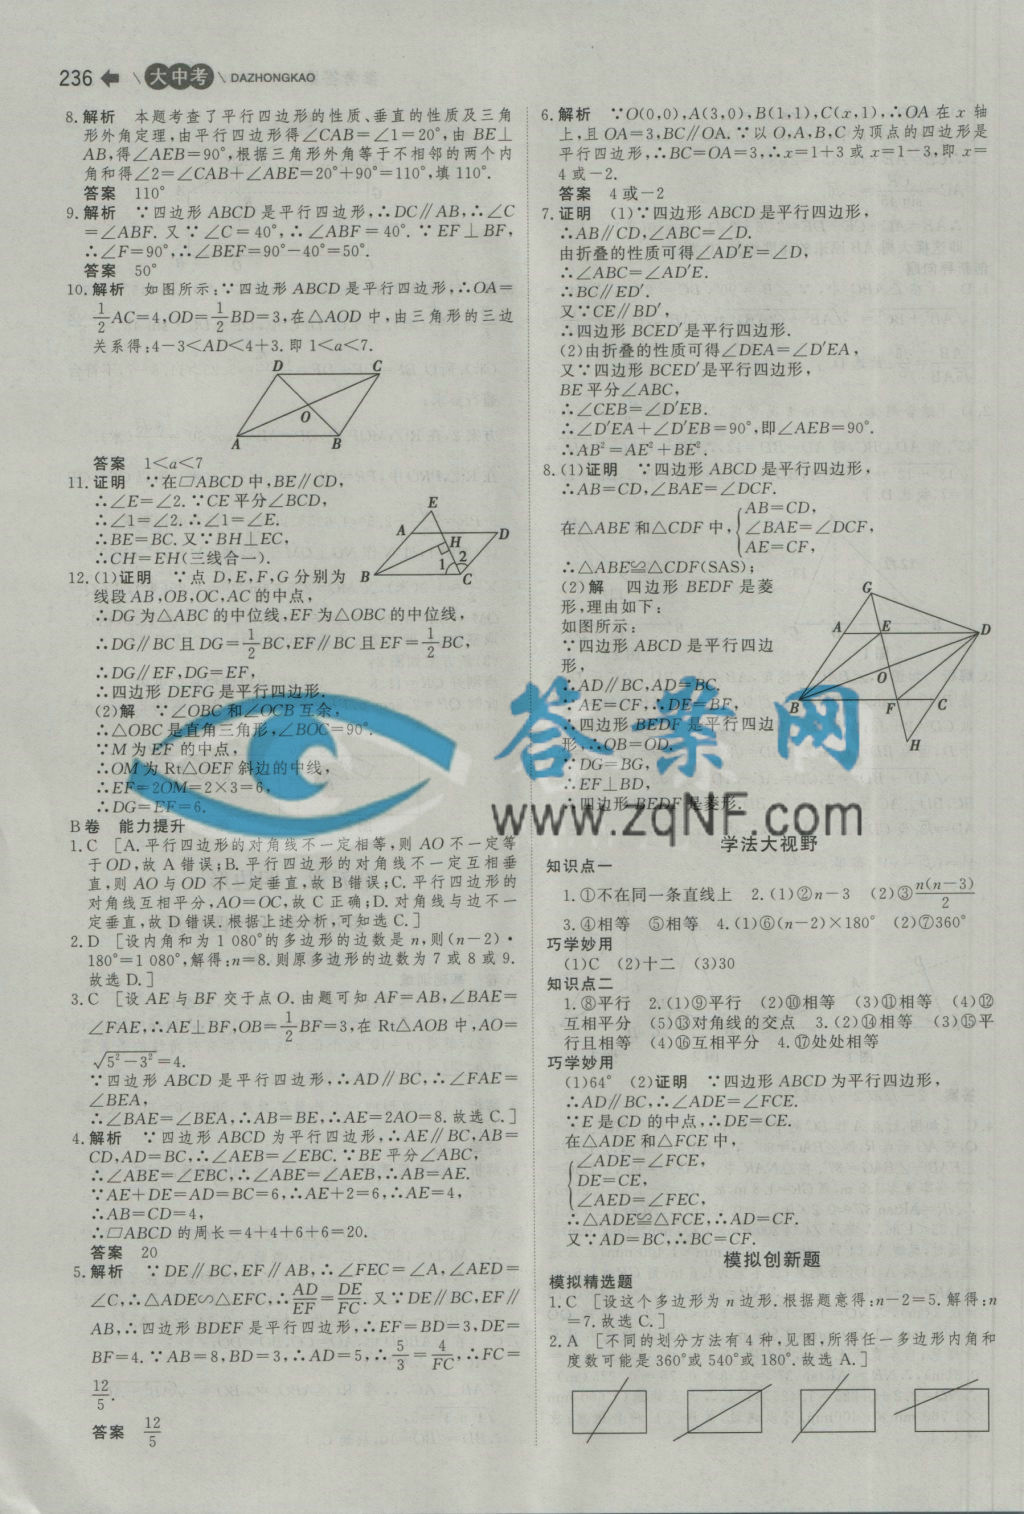 236 大中考 DAZHONGKAO
8.解析 本题考查了平行四边形的性质、垂直的性质及三角
形外角定理,由平行四边形得∠CAB=∠1=20°,由 BE⊥
AB,得∠AEB=90°,根据三角形外角等于不相邻的两个内
角和得∠2=∠CAB+∠ABE=20°+90°=110°,填110°.
答案 110°
9.解析 ∵四边形 ABCD 是平行四边形,∴DC∥AB,∴∠C
=∠ABF.又∵∠C=40°,∴∠ABF=40°.∵EF⊥BF,
∴∠F=90°,∴∠BEF=90°-40°=50°.
答案 50°
10.解析 如图所示:∵四边形 ABCD 是平行四边形,∴OA=
1/2 AC=4,OD=1/2 BD=3,在△AOD 中,由三角形的三边
关系得:4-3<AD<4+3.即 1<a<7.
D C
O
A B
答案 1<a<7
11.证明 ∵在▱ABCD 中,BE∥CD,
∴∠E=∠2.∵CE 平分∠BCD,
∴∠1=∠2.∴∠1=∠E.
∴BE=BC.又∵BH⊥EC,
∴CH=EH(三线合一).
E
A H D
1 2
B C
12.(1)证明 ∵点 D,E,F,G 分别为
线段 AB,OB,OC,AC 的中点,
∴DG 为△ABC 的中位线,EF 为△OBC 的中位线,
∴DG∥BC 且 DG=1/2 BC,EF∥BC 且 EF=1/2 BC,
∴DG∥EF,DG=EF,
∴四边形 DEFG 是平行四边形.
(2)解 ∵∠OBC 和∠OCB 互余,
∴△OBC 是直角三角形,∠BOC=90°.
∵M 为 EF 的中点,
∴OM 为 Rt△OEF 斜边的中线,
∴EF=2OM=2×3=6,
∴DG=EF=6.
B卷 能力提升
1.C [A.平行四边形的对角线不一定相等,则 AO 不一定等
于 OD,故 A 错误;B.平行四边形的对角线不一定互相垂
直,则 AO 与 OD 不一定垂直,故 B 错误;C.平行四边形的
对角线互相平分,AO=OC,故 C 正确;D.对角线与边不一
定垂直,故 D 错误.根据上述分析,可知选 C.]
2.D [设内角和为 1 080°的多边形的边数是 n,则(n-2)·
180°=1 080°,解得:n=8.则原多边形的边数为 7 或 8 或 9.
故选 D.]
3.C [设 AE 与 BF 交于点 O.由题可知 AF=AB,∠BAE=
∠FAE,∴AE⊥BF,OB=1/2 BF=3,在 Rt△AOB 中,AO=
√(5²-3²)=4.
∵四边形 ABCD 是平行四边形,∴AD∥BC,∴∠FAE=
∠BEA,
∴∠BAE=∠BEA,∴AB=BE,∴AE=2AO=8.故选 C.]
4.解析 ∵四边形 ABCD 为平行四边形,∴AE∥BC,AB=
CD,AD=BC,∴∠AEB=∠EBC.∵BE 平分∠ABC,
∴∠ABE=∠EBC,∴∠ABE=∠AEB,∴AB=AE.
∵AE+DE=AD=BC=6,∴AE+2=6,∴AE=4,
∴AB=CD=4,
∴▱ABCD 的周长=4+4+6+6=20.
答案 20
5.解析 ∵DE∥BC,EF∥AB,∴∠FEC=∠A,∠AED=
∠C,∴△ADE∽△EFC,∴AD/EF=DE/FC.又∵DE∥BC,EF∥
AB,∴四边形 BDEF 是平行四边形,∴EF=BD=3,DE=
BF=4.∵AB=8,BD=3,∴AD=5,∴5/3=4/FC,∴FC=
12/5.
答案 12/5
6.解析 ∵O(0,0),A(3,0),B(1,1),C(x,1),∴OA 在 x 轴
上,且 OA=3,BC∥OA.∵以 O,A,B,C 为顶点的四边形是
平行四边形,∴BC=OA=3,∴x=1+3 或 x=1-3,即 x=
4 或-2.
答案 4 或-2
7.证明 (1)∵四边形 ABCD 是平行四边形,
∴AB∥CD,∠ABC=∠D.
由折叠的性质可得∠AD′E=∠D,
∴∠ABC=∠AD′E.
∴BC∥ED′.
又∵CE∥BD′,
∴四边形 BCED′是平行四边形.
(2)由折叠的性质可得∠DEA=∠D′EA,
又∵四边形 BCED′是平行四边形,
BE 平分∠ABC,
∴∠CEB=∠D′EB.
∴∠D′EA+∠D′EB=90°,即∠AEB=90°.
∴AB²=AE²+BE².
8.(1)证明 ∵四边形 ABCD 是平行四边形,
∴AB=CD,∠BAE=∠DCF.
在△ABE 和△CDF 中,
AB=CD,
∠BAE=∠DCF,
AE=CF,
∴△ABE≌△CDF(SAS);
(2)解 四边形 BEDF 是菱
形,理由如下:
如图所示:
∵四边形 ABCD 是平行四边
形,
∴AD∥BC,AD=BC.
∵AE=CF,∴DE=BF,
∴四边形 BEDF 是平行四边
形,∴OB=OD.
∵DG=BG,
∴EF⊥BD,
∴四边形 BEDF 是菱形.
G
A E D
O
B F C
H
答案网
www.zqNF.com
学法大视野
知识点一
1.①不在同一条直线上 2.(1)②n-3 (2)③n(n-3)/2
3.④相等 ⑤相等 4.(1)⑥(n-2)×180° (2)⑦360°
巧学妙用
(1)C (2)十二 (3)30
知识点二
1.⑧平行 2.(1)⑨平行 (2)⑩相等 (3)⑪相等 (4)⑫
互相平分 (5)⑬对角线的交点 3.(2)⑭相等 (3)⑮平
行且相等 (4)⑯互相平分 4.⑰处处相等
巧学妙用
(1)64° (2)证明 ∵四边形 ABCD 为平行四边形,
∴AD∥BC,∴∠ADE=∠FCE.
∵E 是 CD 的中点,∴DE=CE.
在△ADE 和△FCE 中,
∠ADE=∠FCE,
DE=CE,
∠AED=∠FEC,
∴△ADE≌△FCE,∴AD=CF.
又∵AD=BC,∴BC=CF.
模拟创新题
模拟精选题
1.C [设这个多边形为 n 边形.根据题意得:n-2=5.解得:n
=7.故选 C.]
2.A [不同的划分方法有 4 种,见图,所得任一多边形内角和
度数可能是 360°或 540°或 180°.故选 A.]